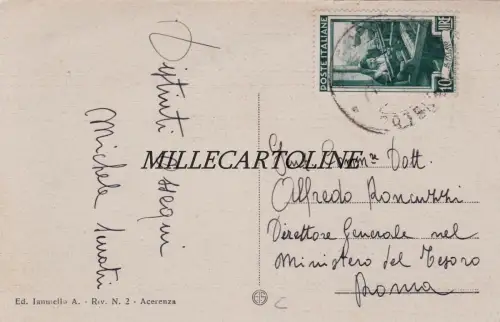 Distinti
ossequi
Michele
POSTE ITALIANE
LIRE
10
MILLECARTOLINE
Dott.
Alfredo Roncuzzi
Direttore Generale nel
Ministero del Tesoro
Roma
Ed. Iannuello A. - Riv. N. 2 - Acerenza